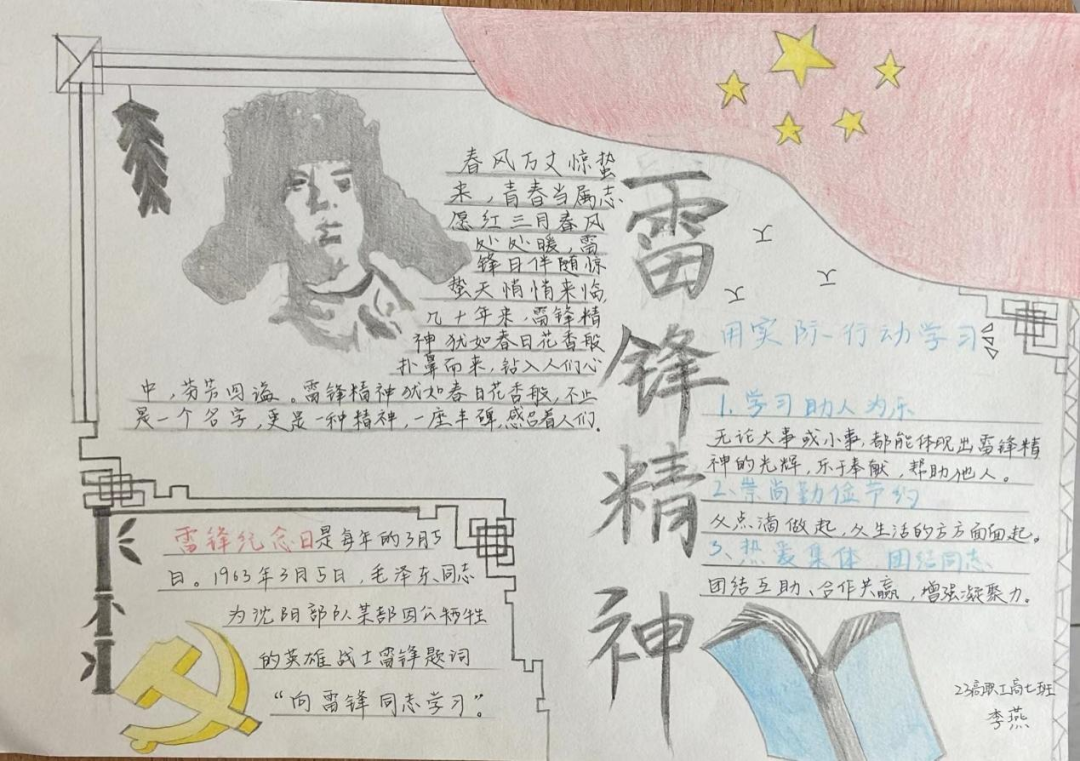 春风万丈惊蛰
来，青春当属志
愿红三月春风
处处暖，雷
锋日伴随惊
蛰天悄悄来临
几十年来，雷锋精
神犹如春日花香般
扑鼻而来，钻入人们心
中，芬芳四溢。雷锋精神犹如春日花香般，不止
是一个名字，更是一种精神，一座丰碑，感召着人们.
雷锋精神
用实际行动学习
1.学习助人为乐
无论大事或小事，都能体现出雷锋精
神的光辉，乐于奉献，帮助他人。
2、崇尚勤俭节约
从点滴做起，从生活的方方面面起。
3、热爱集体 团结同志
团结互助、合作共赢，增强凝聚力.
雷锋纪念日是每年的3月5
日。1963年3月5日，毛泽东同志
为沈阳部队某部因公牺牲
的英雄战士雷锋题词
“向雷锋同志学习”。
23高职工商七班
李燕